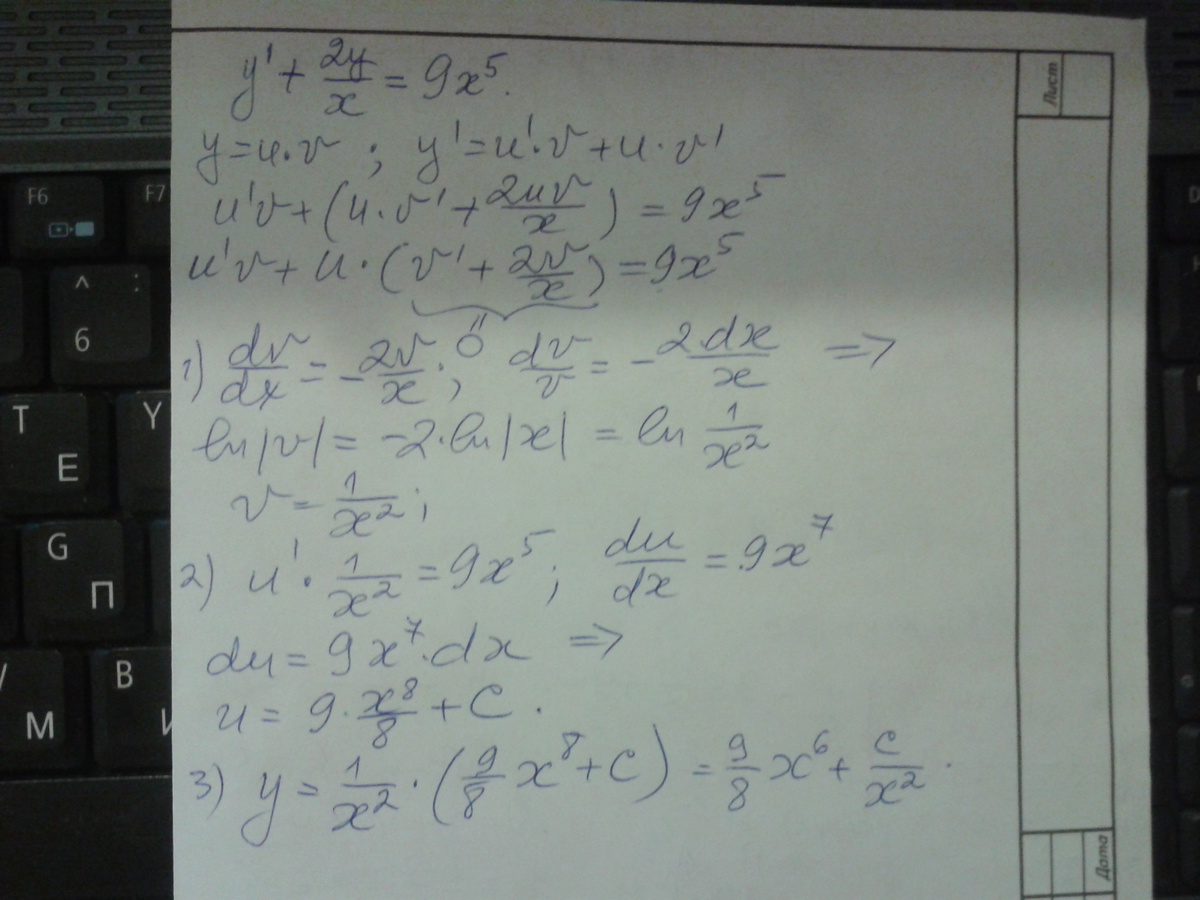 y' + 2y/x = 9x⁵.
y = u·v ; y' = u'·v + u·v'
u'v + (u·v' + 2uv/x) = 9x⁵
u'v + u·(v' + 2v/x) = 9x⁵
0
1) dv/dx = -2v/x ; dv/v = -2·dx/x ⇒
ln|v| = -2·ln|x| = ln 1/x²
v = 1/x² ;
2) u'·1/x² = 9x⁵ ; du/dx = 9x⁷
du = 9x⁷·dx ⇒
u = 9·x⁸/8 + C .
3) y = 1/x²·(9/8 x⁸ + C) = 9/8 x⁶ + C/x² .
Лист
Дата
F6
F7
^ :
6
T
E
Y
G
П
M
B